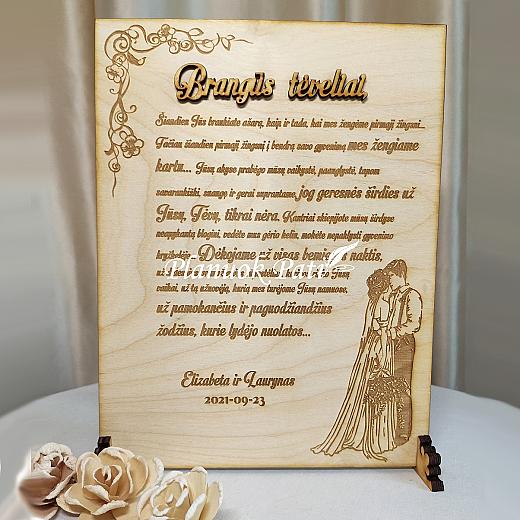 Brangūs tėveliai,
Šiandien Jūs braukiate ašarą, kaip ir tada, kai mes žengėme pirmąjį žingsnį...
Tačiau šiandien pirmąjį žingsnį į bendrą savo gyvenimą mes žengiame
kartu... Jūsų akyse prabėgo mūsų vaikystė, paauglystė, tapom
savarankiški, suaugę ir gerai suprantame, jog geresnės širdies už
Jūsų, Tėvų, tikrai nėra. Kantriai skiepijote mūsų širdyse
neapykantą blogiui, vedėte mus gėrio keliu, mokėte nepaklysti gyvenimo
kryžkelėje. Dėkojame už visas bemieges naktis,
Planuok Pati
vaikai, už tą užuovėją, kurią mes turėjome Jūsų namuose,
už pamokančius ir paguodžiandžius
žodžius, kurie lydėjo nuolatos...
Elizabeta ir Laurynas
2021-09-23